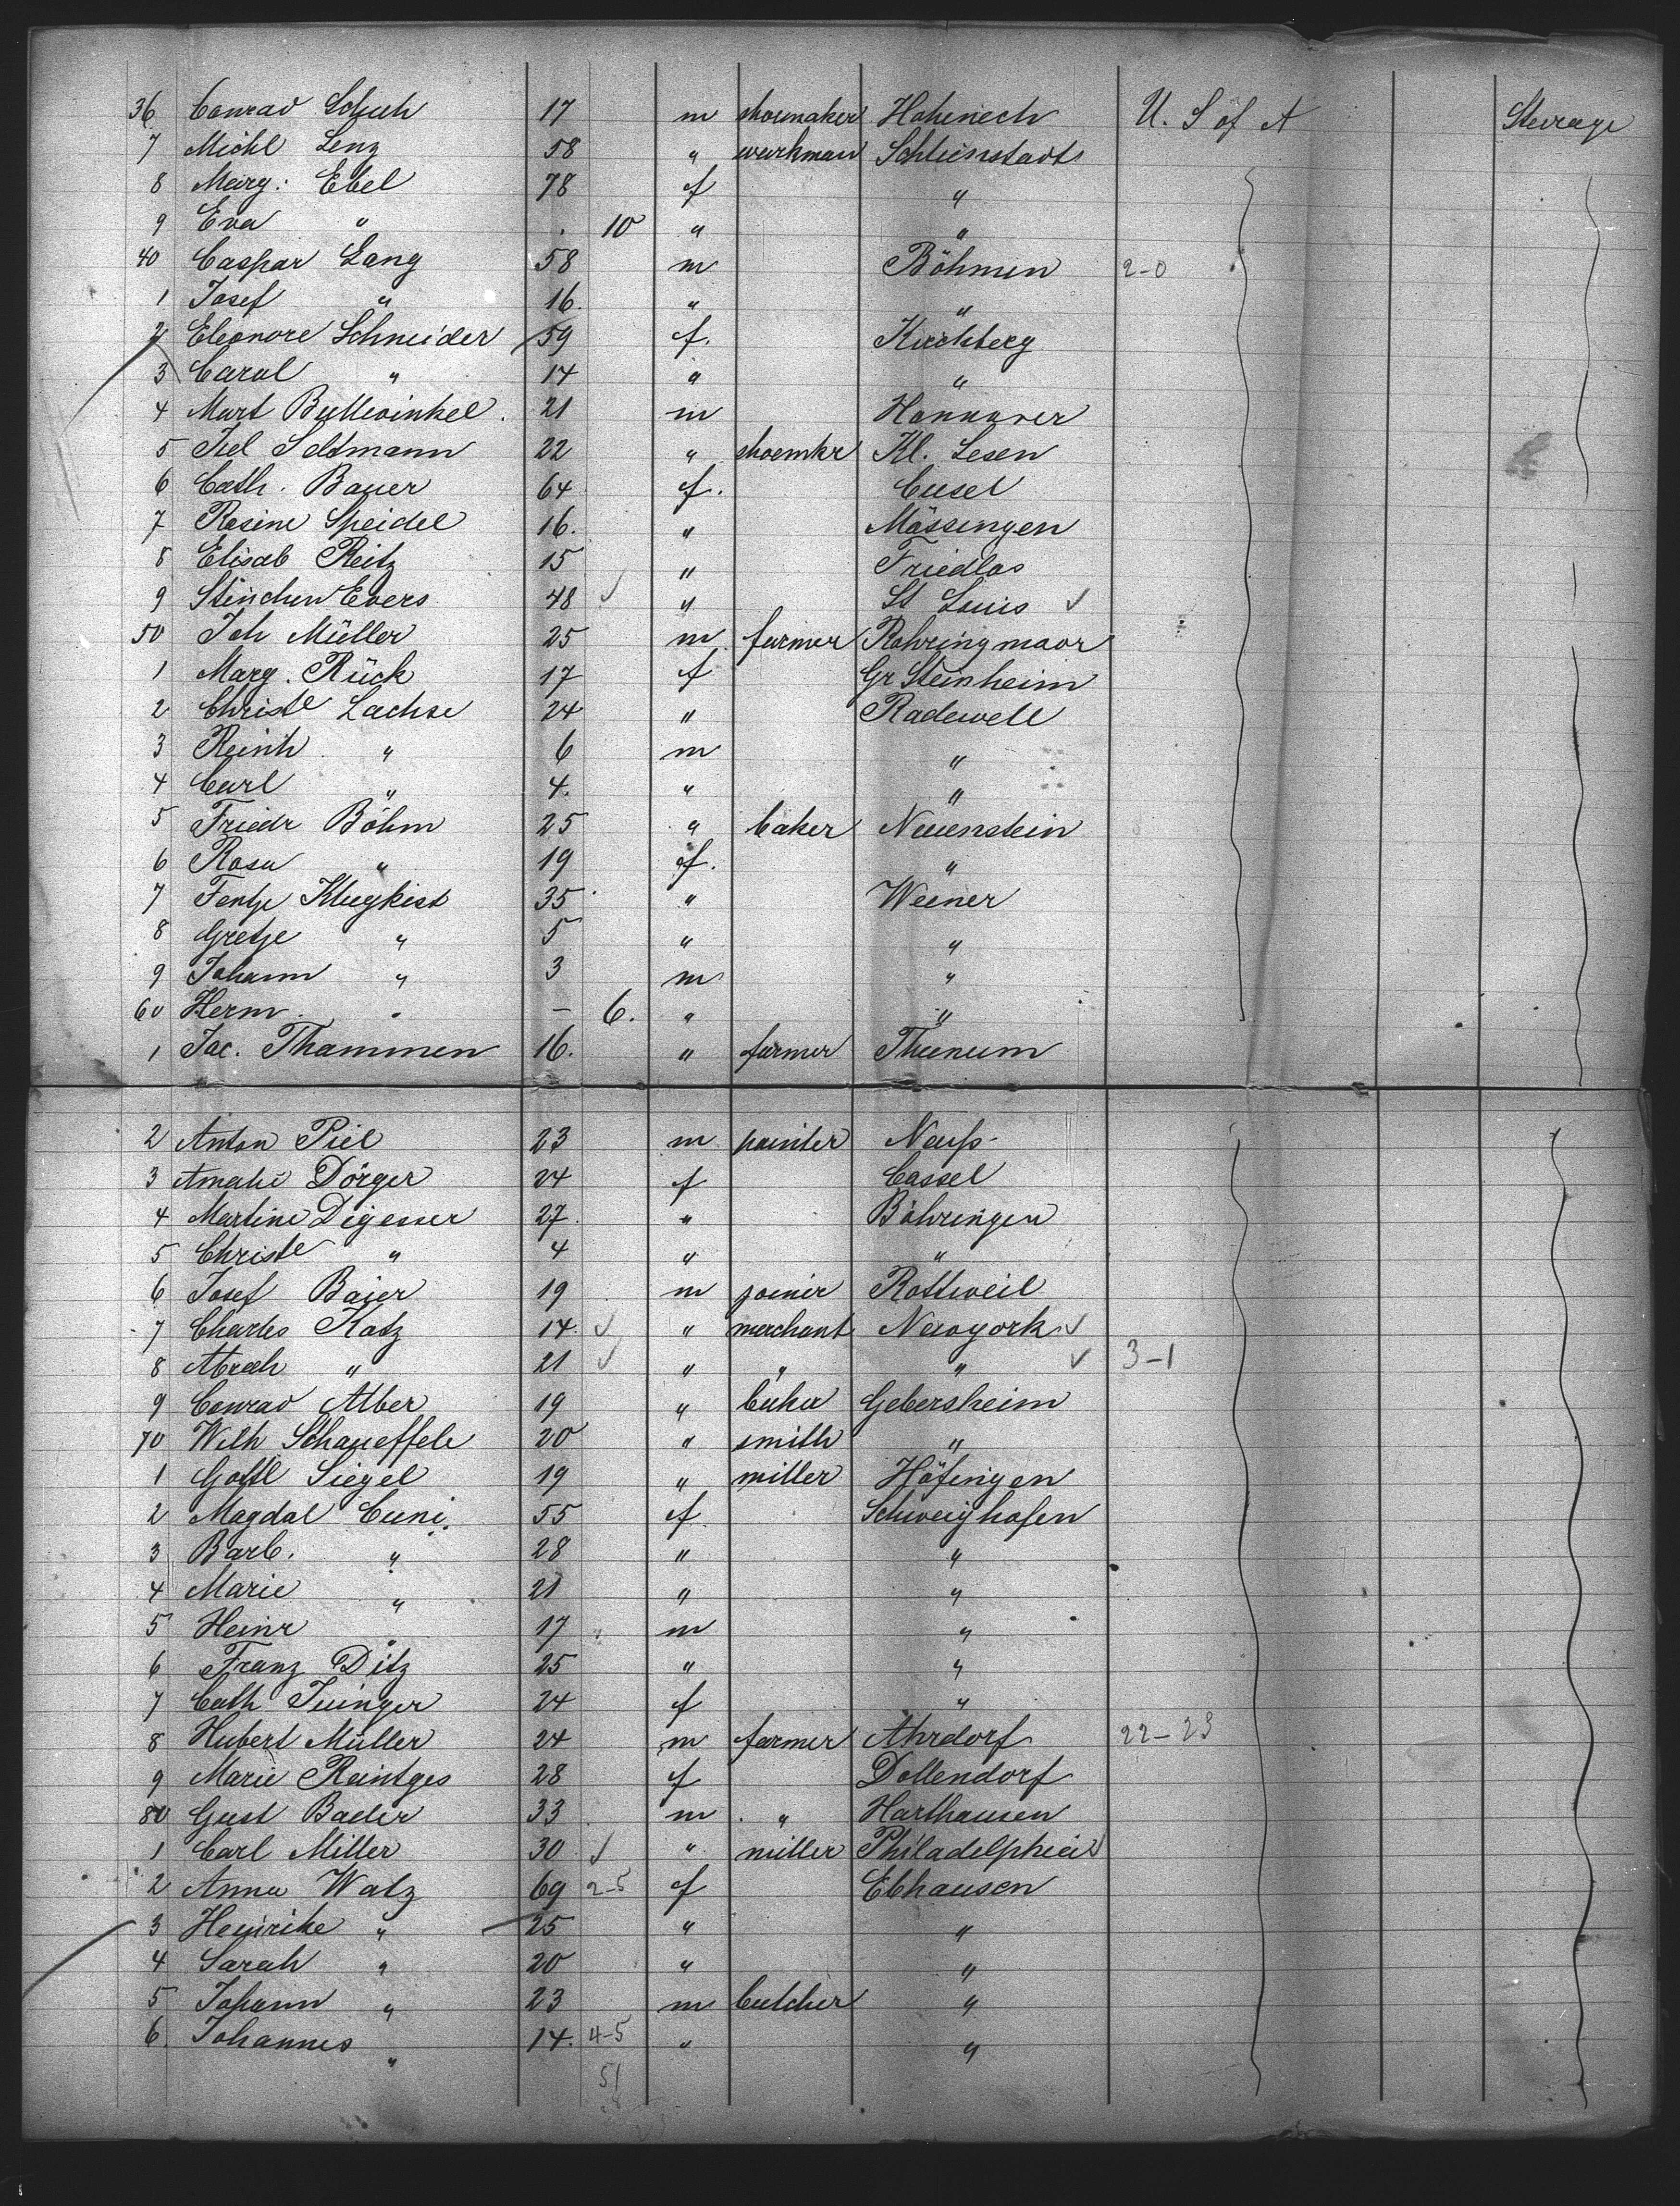 36 Conrad Schuh 17 m shoemaker Hohenech U. S of A Steerage
7 Michl Lenz 58 " workman
8 Marg. Ebel 78 f "
9 Eva " 10 " "
40 Caspar Lang 58 m Böhmen 2-0
1 Josef " 16. " "
2 Eleonore Schneider 59 f. Kirchberg
3 Carol " 14 " "
4 Mart Bullwinkel. 21 m Hannover
5 Seltmann 22 " shoemkr Kl. Lesen
6 Cath. Bauer 64 f. Cusel
7 Rosine Speidel 16. " Mössingen
8 Elisab Reitz 15 " Friedlos
9 Stinchen Evers 48 ✓ " St Louis ✓
50 Joh Müller 25 m farmer Rohringmoor
1 Marg. Rück 17 f Gr Steinheim
2 Christe Lachse 24 " Radewell
3 Reinh. " 6 m "
4 Carl " 4. " "
5 Friedr Böhm 25 " baker Neuenstein
6 Rosa " 19 f. "
7 Fentje Klugkist 35 " Weener
8 Gretje " 5 " "
9 Johann " 3 m "
60 Herm. " – 6. " "
1 Jac. Thammen 16. " farmer Thunum
2 Anton Piel 23 m painter Neuss
3 Amalie Dörger 24 f Cassel
4 Martine Digesser 27. " Böhringen
5 Christe " 4 " "
6 Josef Baier 19 m joiner Rottweil
7 Charles Katz 14. ✓ " merchant Newyork ✓
8 Abrah " 21 ✓ " " " ✓ 3-1
9 Conrad Alber 19 " baker Gebersheim
70 Wilh Schaueffele 20 " smith "
1 Gottl Siegel 19 " miller Höfingen
2 Magdal Cuni. 55 f Schweighofen
3 Barb. " 28 " "
4 Marie " 21 " "
5 Heinr " 17 m "
6 Franz Ditz 25 " "
7 Cath 24 f "
8 Hubert Müller 24 m farmer Ahrdorf 22-23
9 Marie Reintges 28 f Dollendorf
80 Gust Bader 33 m " Harthausen
1 Carl Miller 30 ✓ " miller Philadelphia ✓
2 Anna Walz 69 2-5 f Ebhausen
3 Heinrike " 25 " "
4 Sarah " 20 " "
5 Johann " 23 m butcher "
6. Johannes " 14. 4-5 " "
51